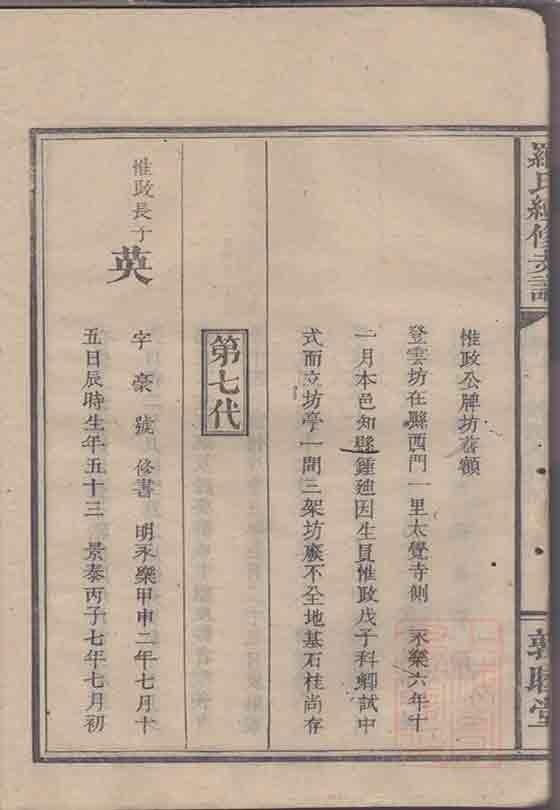 羅氏續修支譜
敦睦堂
惟政公牌坊舊額
登雲坊在縣西門一里太覺寺側　永樂六年十
一月本邑知縣鍾廸因生員惟政戊子科鄉試中
式而立坊亭一間三架坊廢不全地基石柱尚存
第七代
惟政長子
英
字　豪　號　修書　明永樂甲申二年七月十
五日辰時生年五十三　景泰丙子七年七月初